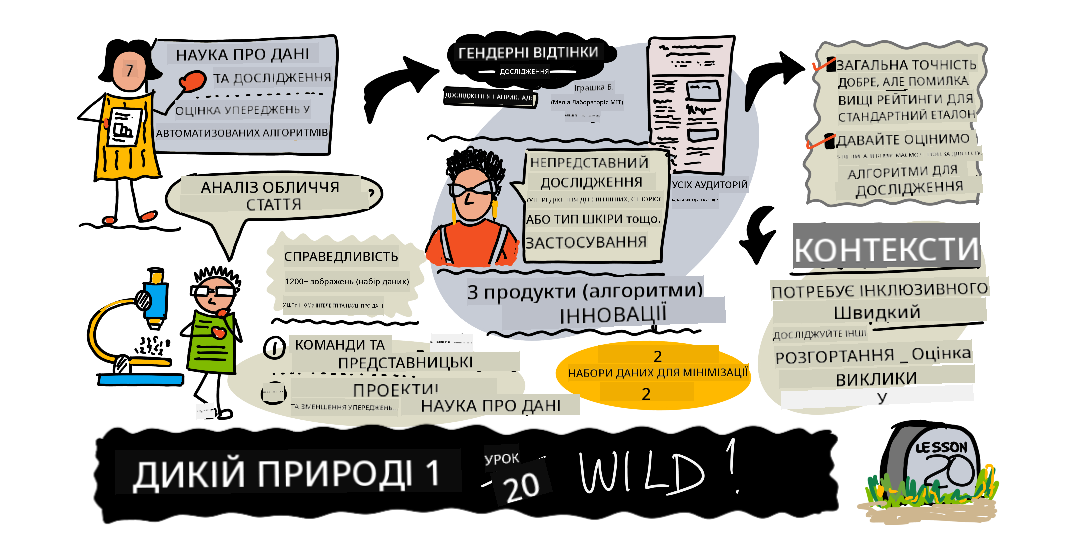 7
НАУКА ПРО ДАНІ
ТА ДОСЛІДЖЕННЯ
ОЦІНКА УПЕРЕДЖЕНЬ У
АВТОМАТИЗОВАНИХ АЛГОРИТМІВ
АНАЛІЗ ОБЛИЧЧЯ ?
СТАТТЯ
СПРАВЕДЛИВІСТЬ
1200+ зображень (набір даних)
1
КОМАНДИ ТА
ПРЕДСТАВНИЦЬКІ
ПРОЕКТИ!
ТА ЗМЕНШЕННЯ УПЕРЕДЖЕНЬ
НАУКА ПРО ДАНІ
ГЕНДЕРНІ ВІДТІНКИ
ДОСЛІДЖЕННЯ
Іграшка Б.
(Медіа Лабораторія МІТ)
НЕПРЕДСТАВНИЙ
ДОСЛІДЖЕННЯ
АБО ТИП ШКІРИ тощо.
ЗАСТОСУВАННЯ
УСІХ АУДИТОРІЙ
3 продукти (алгоритми)
ІННОВАЦІЇ
2
НАБОРИ ДАНИХ ДЛЯ МІНІМІЗАЦІЇ
2
ЗАГАЛЬНА ТОЧНІСТЬ
ДОБРЕ, АЛЕ ПОМИЛКА
ВИЩІ РЕЙТИНГИ ДЛЯ
СТАНДАРТНИЙ ЕТАЛОН
ДАВАЙТЕ ОЦІНИМО
АЛГОРИТМИ ДЛЯ
ДОСЛІДЖЕННЯ
КОНТЕКСТИ
ПОТРЕБУЄ ІНКЛЮЗИВНОГО
Швидкий
ДОСЛІДЖУЙТЕ ІНШІ
РОЗГОРТАННЯ _ Оцінка
ВИКЛИКИ
У
ДИКІЙ ПРИРОДІ 1
УРОК
20
WILD!
LESSON
20